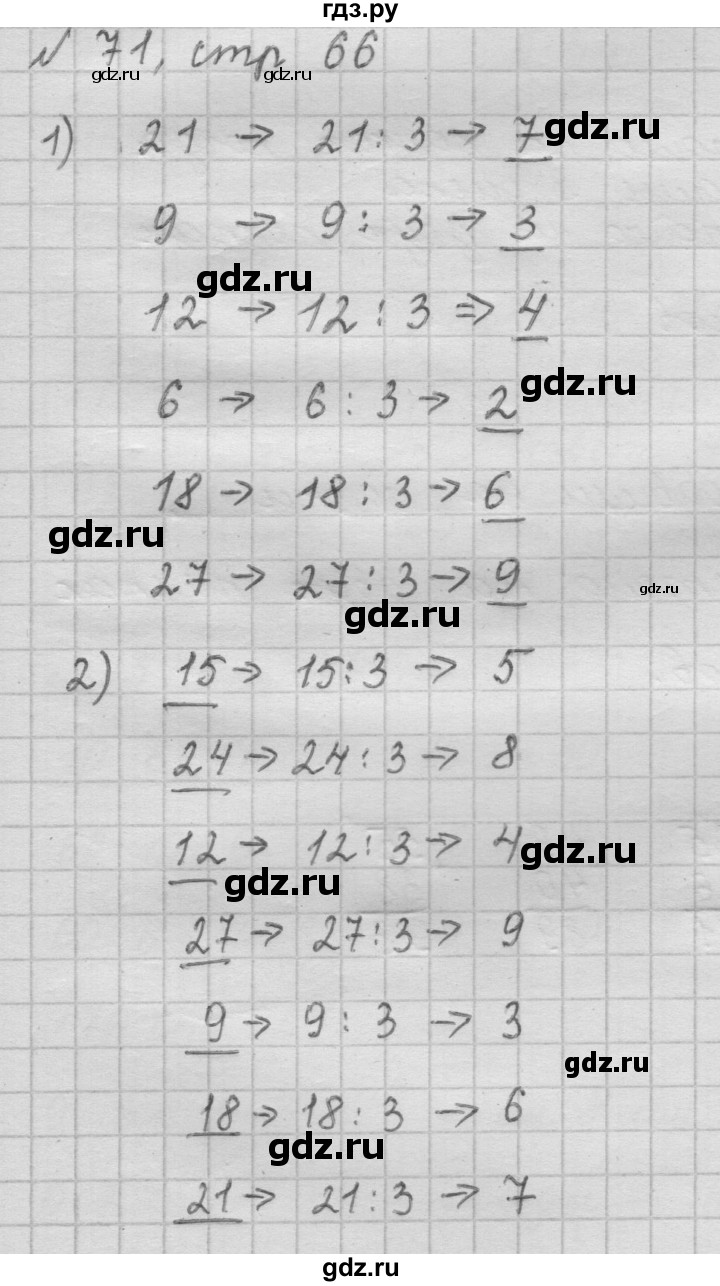 гдз.ру
№ 71, стр 66
gdz.ru gdz.ru
1) 21 → 21 : 3 → 7 gdz.ru
9 → 9 : 3 → 3
gdz.ru
12 → 12 : 3 ⇒ 4
gdz.ru
6 → 6 : 3 → 2
18 → 18 : 3 → 6
gdz.ru
27 → 27 : 3 → 9 gdz.ru
gdz.ru
2) 15 → 15 : 3 → 5
24 → 24 : 3 → 8
12 → 12 : 3 → 4 gdz.ru
gdz.ru
27 → 27 : 3 → 9
9 → 9 : 3 → 3
gdz.ru
18 → 18 : 3 → 6
gdz.ru
21 → 21 : 3 → 7
gdz.ru